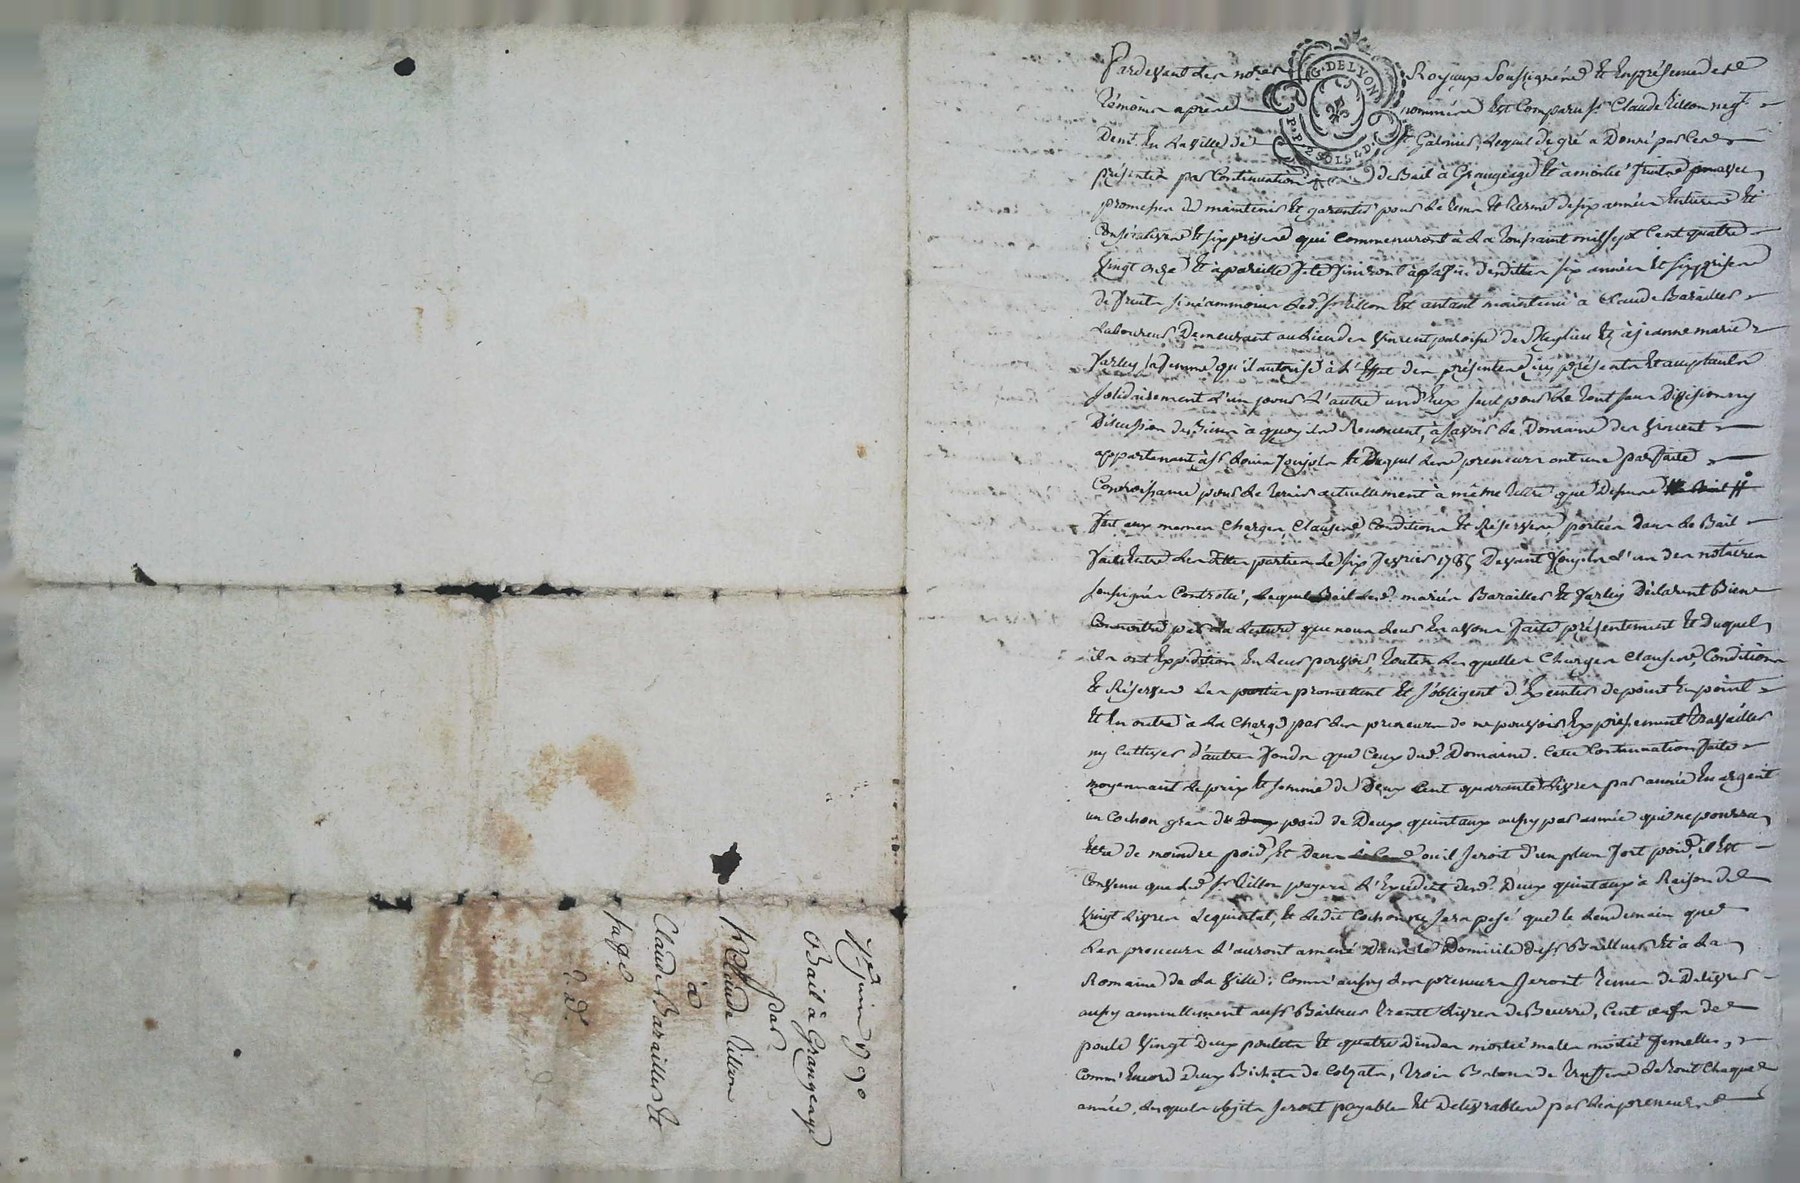 Pardevant les nores Royaux Soussignéz Et En présence des
témoins après nommés Est Comparu sr Claude Villon negt
Demt En la Ville de St Galmier, lequel de gré a Donné par ces
présentes par Continuation de Bail à Grangeage Et à moitié fruits avec
promesse de maintenir Et garantir pour le tems Et terme de six années Entieres Et
Consécutives Et six prises qui Commenceront à la toussaint mil sept Cent quatre
Vingt onze Et à pareille fête finiront lesdittes six années Et six prises
de fruits led. sr Villon Est autant maintenu à Claude Barailler
Laboureur Demeurant au lieu des Vincent paroisse de Et à jeanne marie
Varley sa femme qu'il autorise à l'Effet des présentes icy présents Et acceptants
solidairement l'un pour l'autre un d'Eux seul pour le tout sans Division ny
Discussion de Biens à quoy ils Renoncent, à savoir le Domaine des Vincent
appartenant à sr Et Duquel les preneurs ont une parfaite
Connoissance pour le tenir actuellement à même titre que Dessus
fait aux mêmes Charges, Clauses, Conditions Et Réserves portées dans le Bail
fait Entre les dittes parties le six fevrier 1785 Devant l'un des notaires
soussignés Controllé, lequel Bail lesd. mariés Barailler Et Varley Déclarent Bien
Connoitre par la lecture que nous leur En avons faite présentement Et Duquel
ils ont Expédition En leur pouvoir, toutes lesquelles Charges Clauses, Conditions
Et Réserves les parties promettent Et s'obligent d'Exécuter de point En point
Et En outre à la Charge par les preneurs de ne pouvoir Expressement travailler
ny Cultiver d'autre fonds que Ceux dud. Domaine. Cette Continuation faite
moyennant le prix Et somme de Deux Cent quarante Livres par année En argent
un Cochon gras du poid de Deux quintaux aussy par année qui ne pourra
Etre de moindre poid, Et dans où il seroit d'un plus fort poid, il Est
Convenu que led. sr Villon payera l'Excédent desd. Deux quintaux à Raison de
Vingt Livres Lequintal, Et ledit Cochon ne sera pesé que le lendemain que
les preneurs l'auront amené Dans le Domicile du sr Bailleur Et à la
Romaine de la Ville; Comm'aussy les preneurs seront tenus de Delivrer
aussy annuellement au sr Bailleur trente Livres de Beurre, Cent œufs de
poule Vingt Deux poulets Et quatre Dindes moitié males moitié femelles,
Comm'Encore Deux Bichets de Colzats, trois Bennes de truffes le tout Chaque
année, lesquels objets seront payables Et Delivrables par les preneurs
juin 1790
Bail à Grangeage
par
sr Claude Villon
à
Claude Barailler Et
sa fe